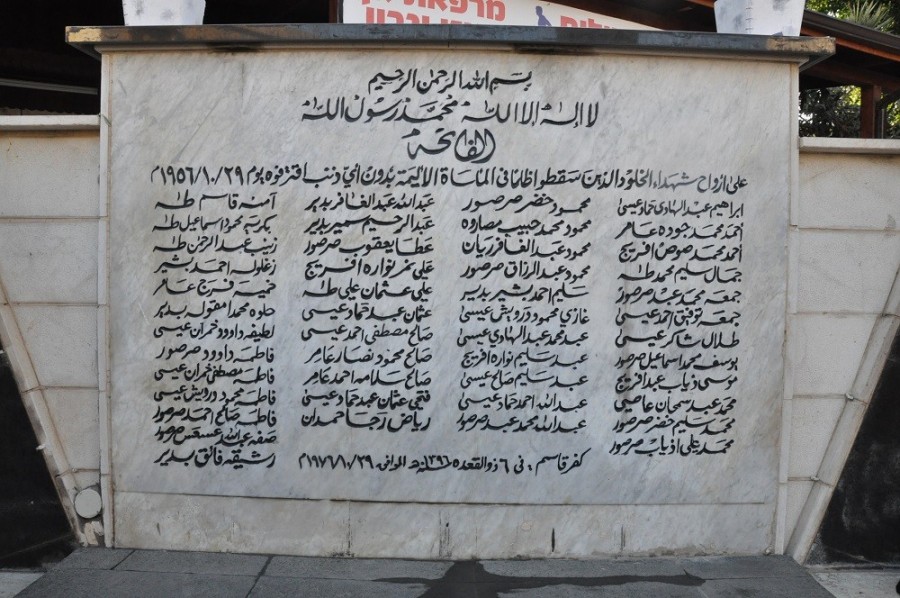 מרפאת
بسم الله الرحمن الرحيم
لا إله إلا الله محمد رسول الله
الفاتحة
على ارواح شهداء الخلود الذين سقطوا ظلماً في المأساة الأليمة بدون أي ذنب اقترفوه يوم ١٩٥٦/١٠/٢٩م
ابراهيم عبد الهادي حماد عيسى
أحمد محمد جوده عامر
أحمد محمد صوص افريج
جمال سليم محمد طه
جمعه محمد عبد صرصور
جمعه توفيق احمد عيسى
طلال شاكر عيسى
يوسف محمد اسماعيل صرصور
موسى ذياب عبد افريج
محمد عبد سمحان عاصي
محمد سليم خضر صرصور
محمد علي اذياب صرصور
محمود خضر صرصور
محمود محمد حبيب مصاروه
محمود عبد الغافر ريان
محمود عبد الرزاق صرصور
سليم احمد بشير بدير
غازي محمود درويش عيسى
عبد محمد عبد الهادي عيسى
عبد سليم نواره افريج
عبد سليم صالح عيسى
عبد الله احمد حماد عيسى
عبد الله محمد عبد صرصور
عبد الله عبد الغافر بدير
عبد الرحيم سمير بدير
عطا يعقوب صرصور
علي نمر نواره افريج
علي عثمان علي طه
عثمان عبد حماد عيسى
صالح مصطفى احمد عيسى
صالح محمود نصار عامر
صالح سلامه احمد عامر
فتحي عثمان عبد حماد عيسى
رياض رجا حمدان
آمنة قاسم طه
بكريه محمود اسماعيل طه
زينب عبد الرحمن طه
زغلوله احمد بشير
خميسه فرج عامر
حلوه محمد بدير
لطيفه داوود خمران عيسى
فاطمه داوود صرصور
فاطمه مصطفى خمران عيسى
فاطمه محمود درويش عيسى
فاطمه صالح احمد صرصور
صفه عبد الله صرصور
رشيقه فائق بدير
كفر قاسم : في ٦ ذو القعده ١٣٩٦هـ الموافق ١٩٧٦/١٠/٢٩م